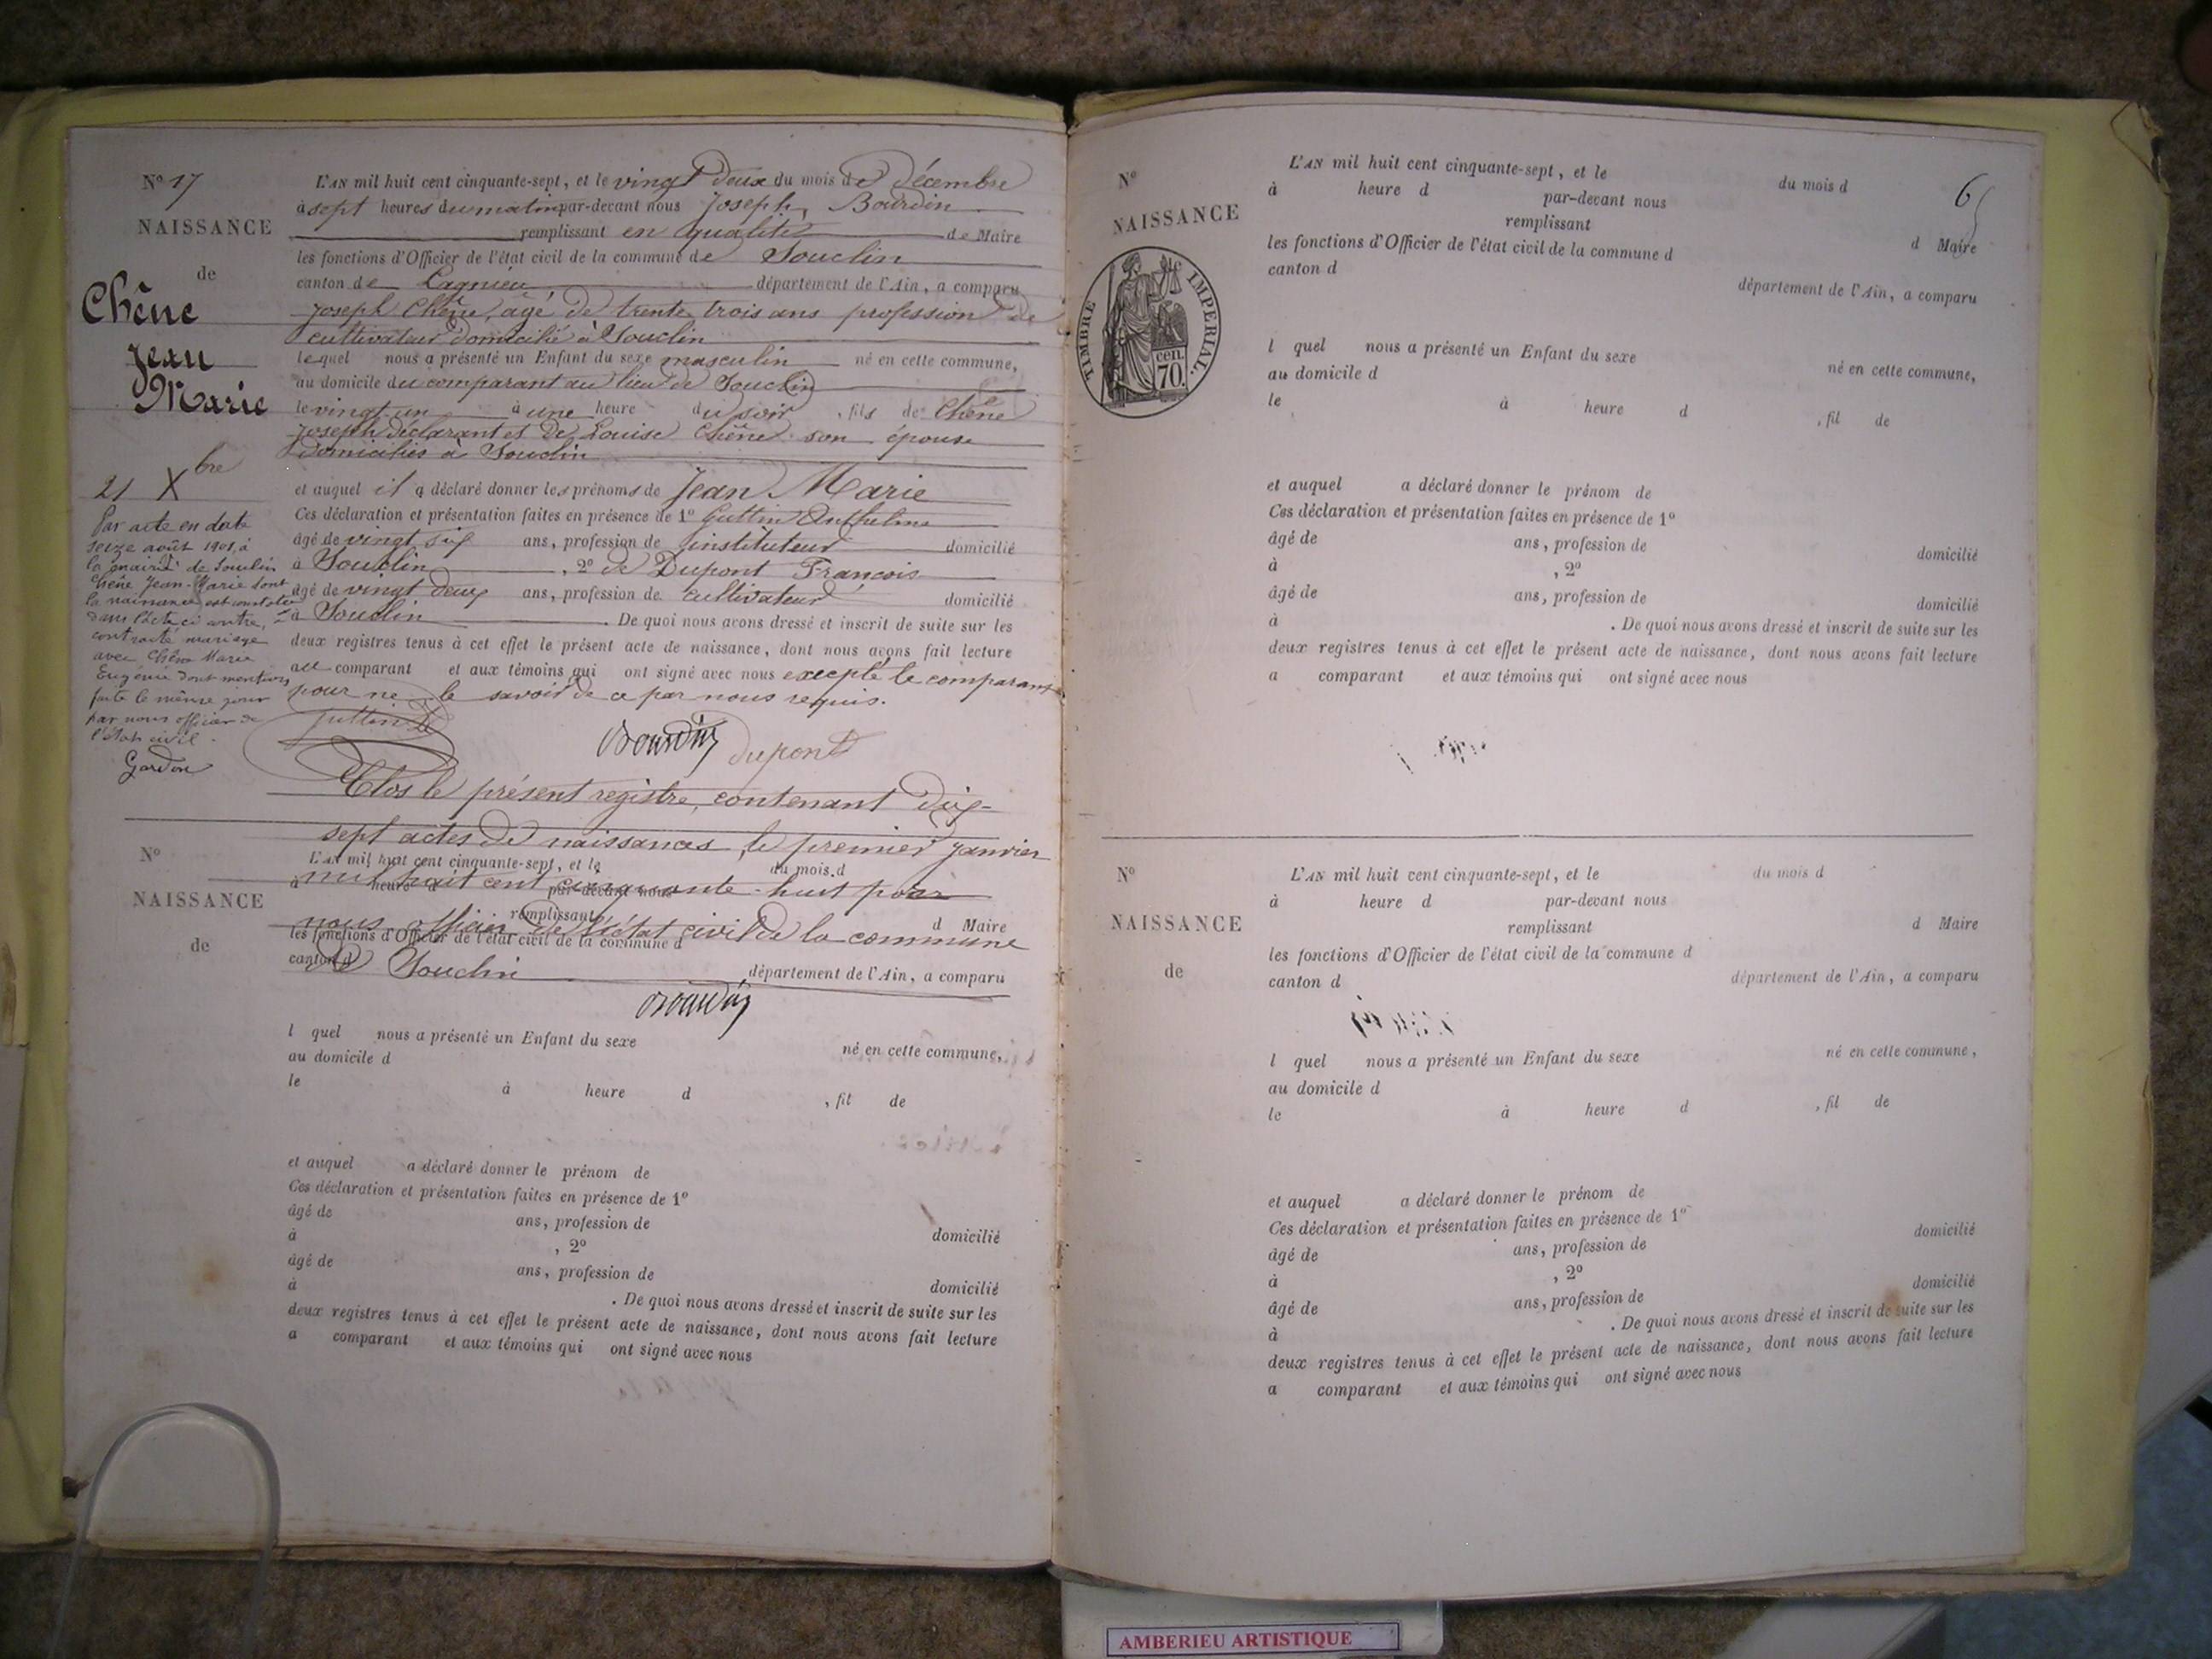 N° 17
NAISSANCE
de
Chêne
Jean
Marie
21 Xbre
Par acte en date
seize août 1901, à
la mairie de Souclin
Chêne Jean-Marie dont
la naissance est constatée
dans l'acte ci contre, a
contracté mariage
avec Chêne Marie
Eugénie dont mention
faite le même jour
par nous officier de
l'état civil.
Gardon
L'AN mil huit cent cinquante-sept, et le vingt deux du mois de Décembre
à sept heures du matin par-devant nous Joseph Bourdin
remplissant en qualité de Maire
les fonctions d'Officier de l'état civil de la commune de Souclin
canton de Lagnieu département de l'Ain, a comparu
Joseph Chêne, agé de trente trois ans profession de
cultivateur domicilié à Souclin
lequel nous a présenté un Enfant du sexe masculin né en cette commune,
au domicile du comparant au lieu de Souclin
le vingt un à une heure du soir, fils de Chêne
Joseph déclarant et de Louise Chêne son épouse
domiciliés à Souclin
et auquel il a déclaré donner les prénoms de Jean Marie
Ces déclaration et présentation faites en présence de 1° Guttin Anthelme
âgé de vingt six ans, profession de instituteur domicilié
à Souclin, 2° de Dupont François
âgé de vingt deux ans, profession de cultivateur domicilié
à Souclin. De quoi nous avons dressé et inscrit de suite sur les
deux registres tenus à cet effet le présent acte de naissance, dont nous avons fait lecture
au comparant et aux témoins qui ont signé avec nous excepté le comparant
pour ne le savoir de ce par nous requis.
Guttin Bourdin Dupont
Clos le présent registre, contenant dix-
sept actes de naissances, le premier janvier
mil huit cent cinquante-huit par
nous officier de l'état civil de la commune
de Souclin
Bourdin
N°
NAISSANCE
de
L'AN mil huit cent cinquante-sept, et le du mois d
à heure d par-devant nous
remplissant d Maire
les fonctions d'Officier de l'état civil de la commune d
canton d département de l'Ain, a comparu
l quel nous a présenté un Enfant du sexe né en cette commune,
au domicile d
le à heure d , fil de
et auquel a déclaré donner le prénom de
Ces déclaration et présentation faites en présence de 1°
âgé de ans, profession de domicilié
à , 2°
âgé de ans, profession de domicilié
à . De quoi nous avons dressé et inscrit de suite sur les
deux registres tenus à cet effet le présent acte de naissance, dont nous avons fait lecture
a comparant et aux témoins qui ont signé avec nous
6
N°
NAISSANCE
TIMBRE IMPERIAL.
cen.
70.
L'AN mil huit cent cinquante-sept, et le du mois d
à heure d par-devant nous
remplissant d Maire
les fonctions d'Officier de l'état civil de la commune d
canton d département de l'Ain, a comparu
l quel nous a présenté un Enfant du sexe né en cette commune,
au domicile d
le à heure d , fil de
et auquel a déclaré donner le prénom de
Ces déclaration et présentation faites en présence de 1°
âgé de ans, profession de domicilié
à , 2°
âgé de ans, profession de domicilié
à . De quoi nous avons dressé et inscrit de suite sur les
deux registres tenus à cet effet le présent acte de naissance, dont nous avons fait lecture
a comparant et aux témoins qui ont signé avec nous
N°
NAISSANCE
de
L'AN mil huit cent cinquante-sept, et le du mois d
à heure d par-devant nous
remplissant d Maire
les fonctions d'Officier de l'état civil de la commune d
canton d département de l'Ain, a comparu
l quel nous a présenté un Enfant du sexe né en cette commune,
au domicile d
le à heure d , fil de
et auquel a déclaré donner le prénom de
Ces déclaration et présentation faites en présence de 1°
âgé de ans, profession de domicilié
à , 2°
âgé de ans, profession de domicilié
à . De quoi nous avons dressé et inscrit de suite sur les
deux registres tenus à cet effet le présent acte de naissance, dont nous avons fait lecture
a comparant et aux témoins qui ont signé avec nous
AMBERIEU ARTISTIQUE